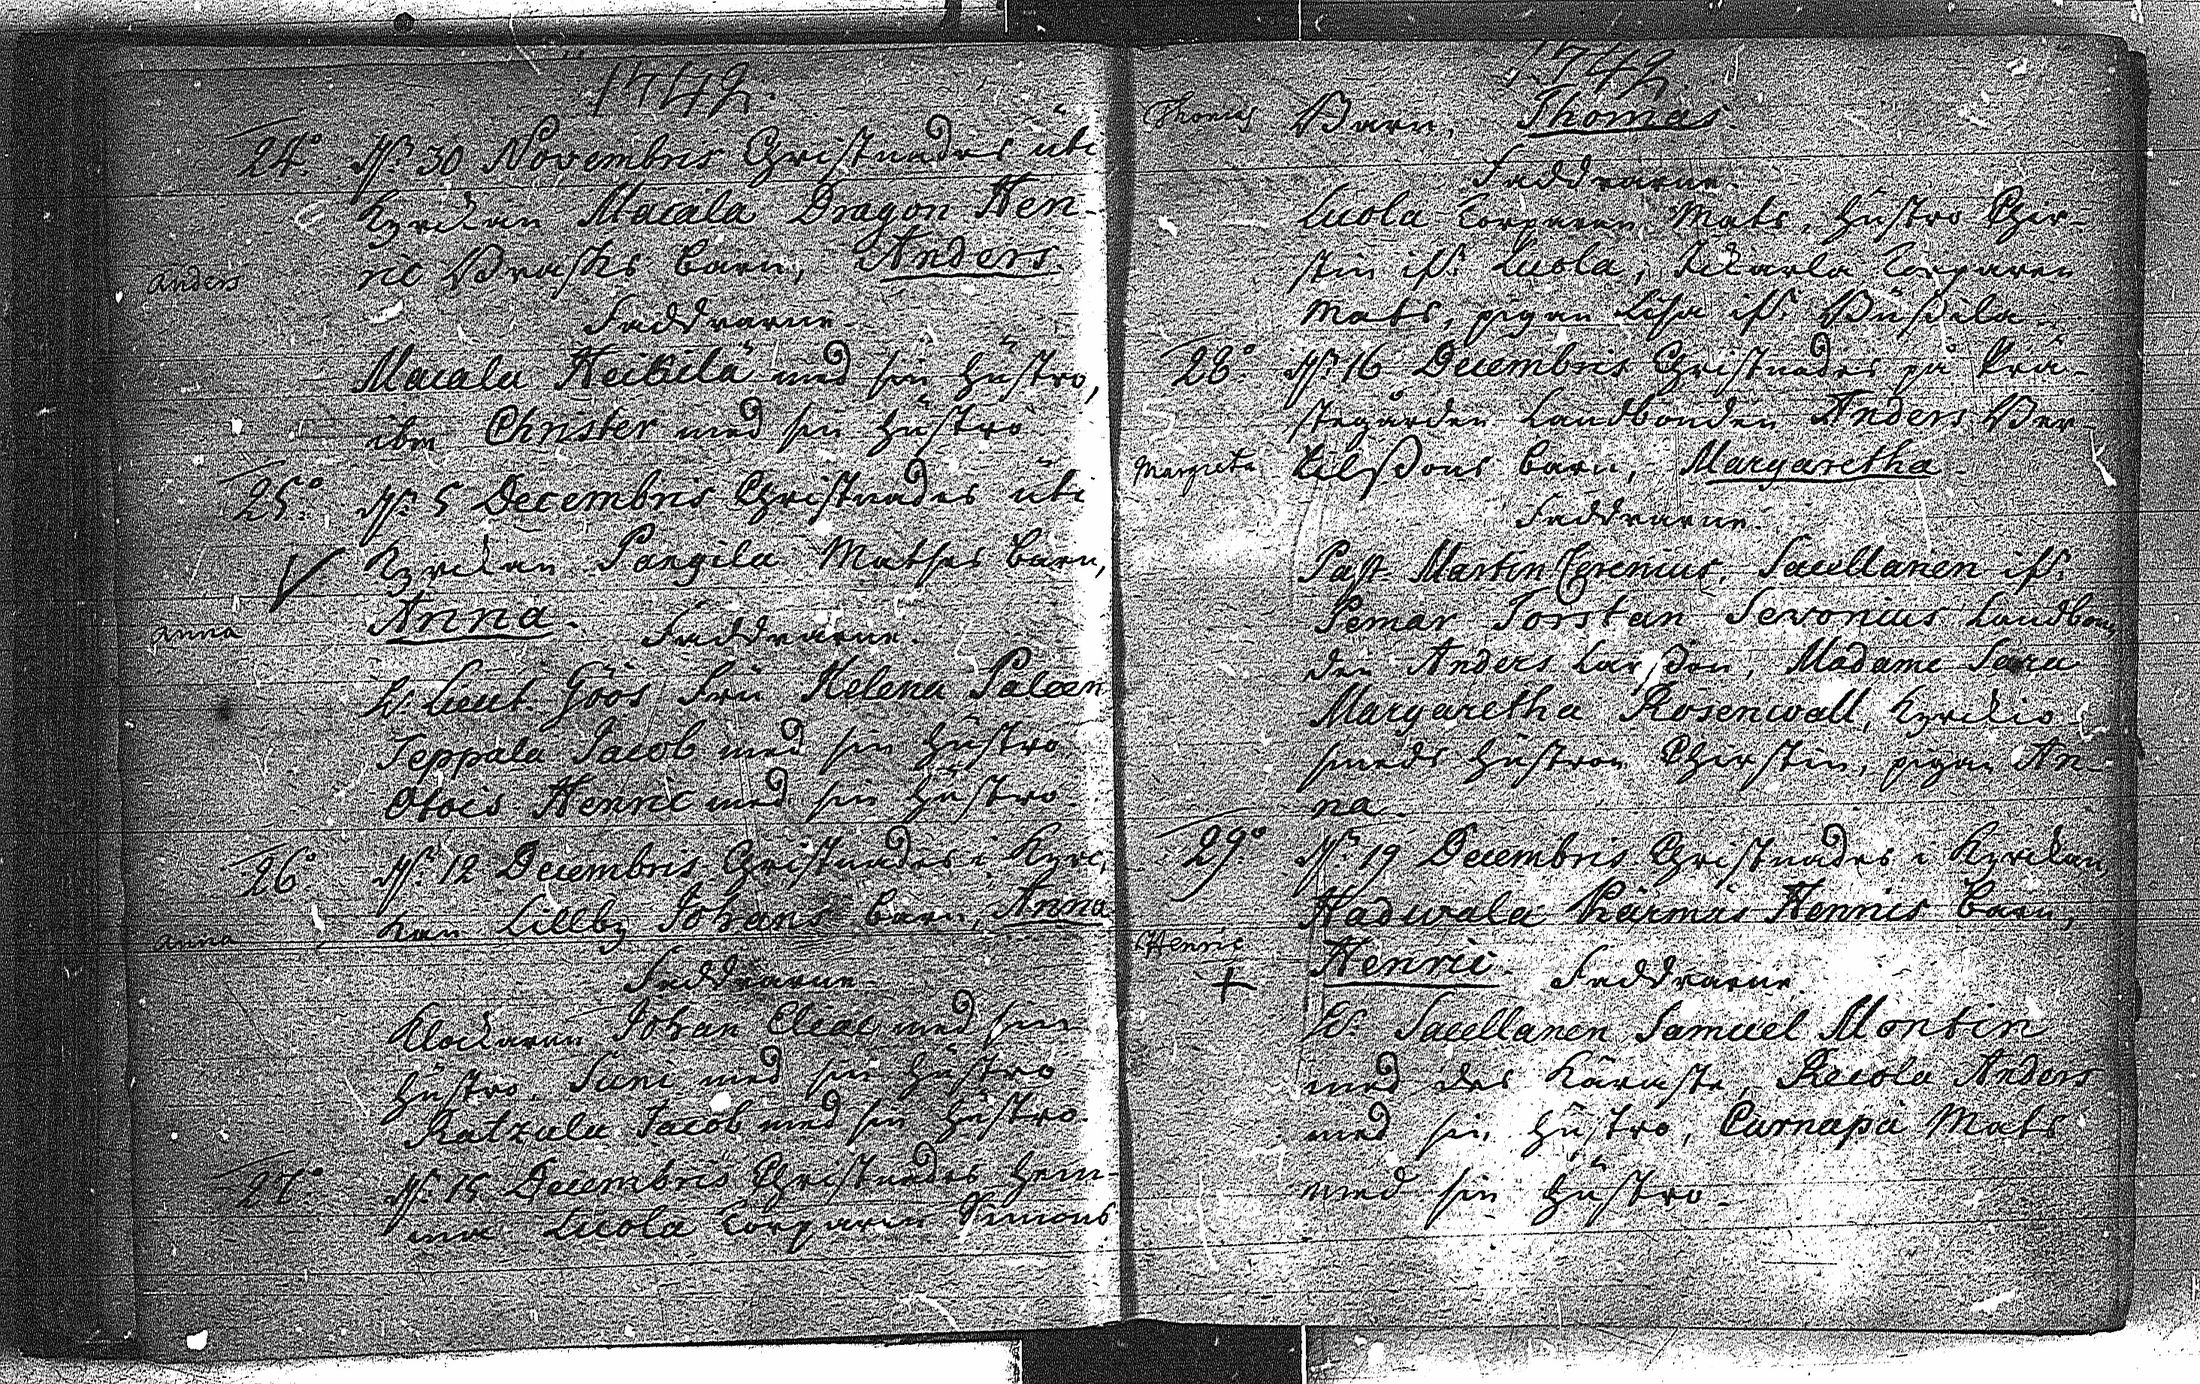 1742.
24:o d. 30 Novembris Christnades uti
Kyrckan Macala Dragon Hen-
ric Brasks barn, Anders.
Anders
Faddrarne.
Macala Heickilä med sin hustru,
ibm Christer med sin hustru
25:o d. 5 Decembris Christnades uti
Kyrckan Pangila Mathses barn,
Anna. Faddrarne.
Anna
H. Lieut. Göös Fru Helena
Teppala Jacob med sin hustro
Henric med sin hustro.
26:o d. 12 Decembris Christnades i Kyrc-
kan Lillby Johans barn, Anna
Anna
Faddrarne
Klockaren Johan med sin
hustro, Suni med sin hustro
Ratzula Jacob med sin hustro.
27:o d. 15 Decembris Christnades hem-
ma Lucola Torparen Simons
1742.
Thomas Barn, Thomas.
Faddrarne.
Lucola Torparen Mats, hustro Chir-
stin if. Lucola, Torparen
Mats, pigan Lisa if.
28:o d. 16 Decembris Christnades på Prä-
stegården Landbonden Anders Ber-
Margreta tilssons barn, Margaretha.
Faddrarne.
Past. Martin Sacellanen if.
Pemar Torstan Sevonius Landbon-
den Anders Larsson, Madame Sara
Margaretha Rosenwall, Kyrckio-
smeds hustron Chirstin, pigan An-
na.
29:o d. 19 Decembris Christnades i Kyrckan
Hadwala Henrics barn,
Henric
Henric. Faddrarne.
H. Sacellanen Samuel Montin
med des Käreste, Recola Anders
med sin hustro, Carnapä Mats
med sin hustro.